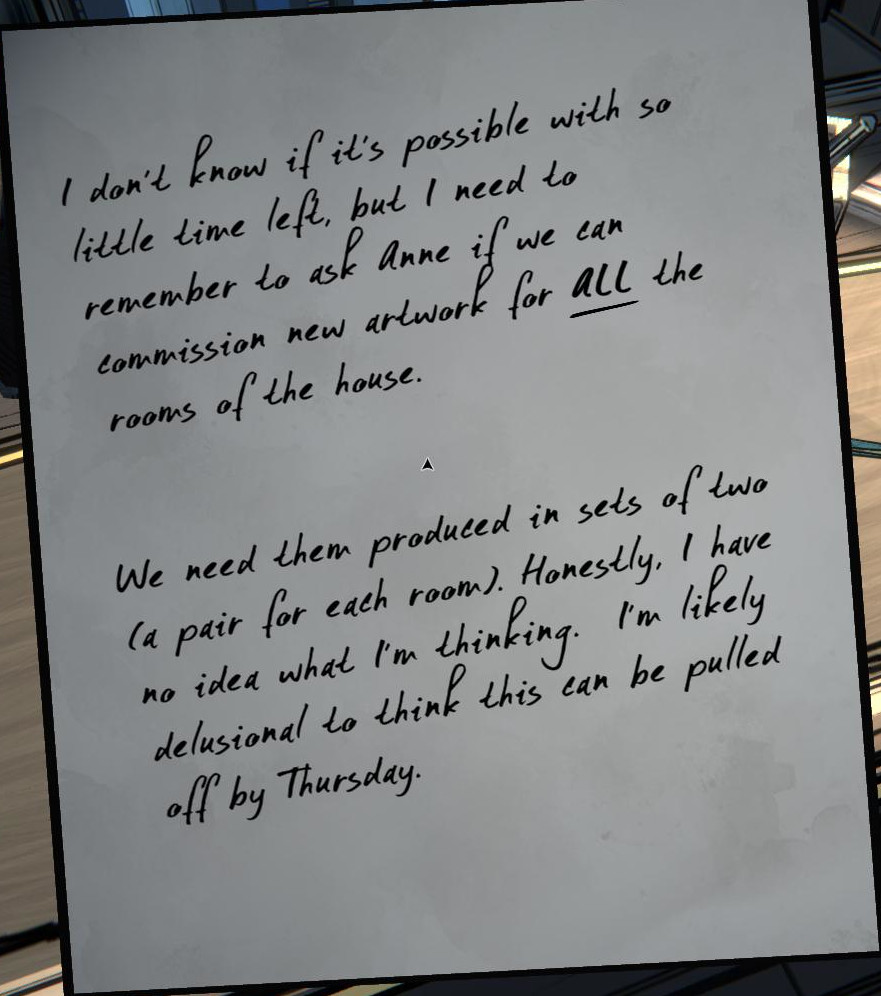 I don't know if it's possible with so
little time left, but I need to
remember to ask Anne if we can
commission new artwork for ALL the
rooms of the house.
We need them produced in sets of two
(a pair for each room). Honestly, I have
no idea what I'm thinking. I'm likely
delusional to think this can be pulled
off by Thursday.